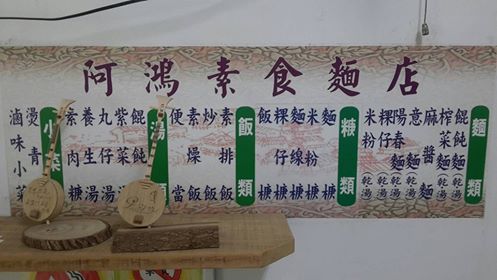 阿鴻素食麵店
麵類
餛飩麵(乾湯)
榨菜麵(乾湯)
麻醬麵
意麵(乾湯)
陽春麵(乾湯)
粿仔(乾湯)
米粉(乾湯)
糖類
麵糖
米粉糖
麵線糖
粿仔糖
飯糖
飯類
素排飯
炒飯
素燥飯
便當
湯類
餛飩湯
紫菜湯
丸仔湯
養生湯
素肉糖
小菜
燙青
滷味小菜